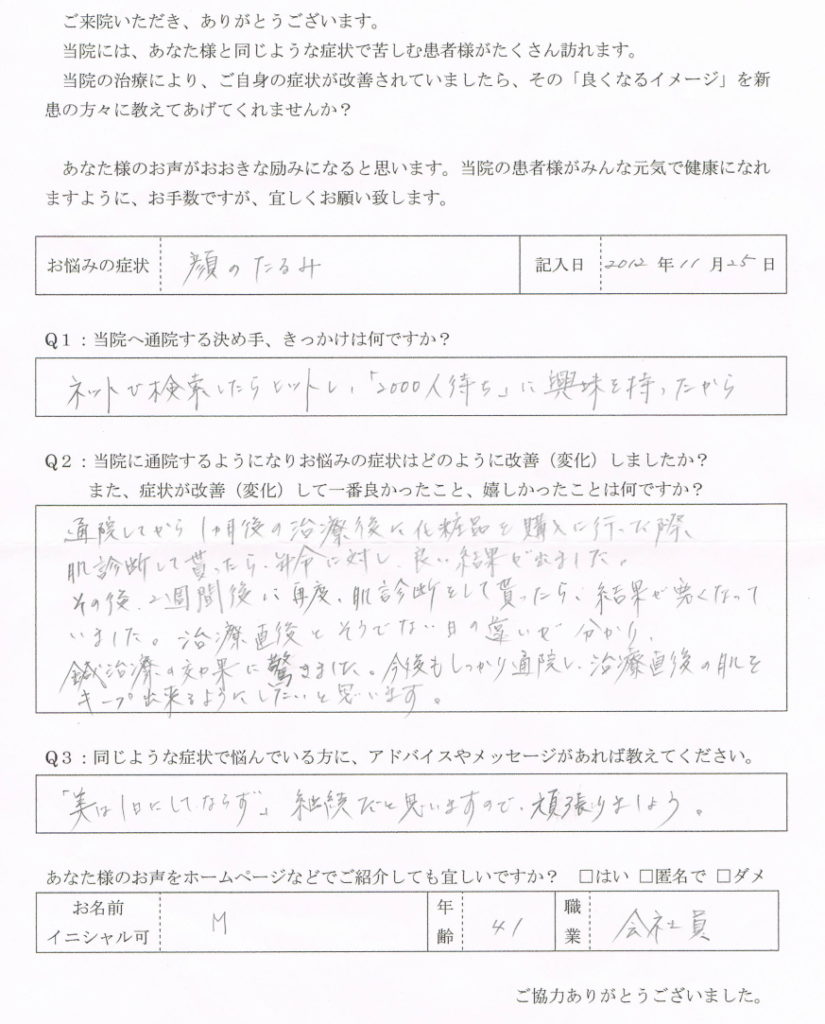 ご来院いただき、ありがとうございます。
当院には、あなた様と同じような症状で苦しむ患者様がたくさん訪れます。
当院の治療により、ご自身の症状が改善されていましたら、その「良くなるイメージ」を新
患の方々に教えてあげてくれませんか？
あなた様のお声がおおきな励みになると思います。当院の患者様がみんな元気で健康になれ
ますように、お手数ですが、宜しくお願い致します。
お悩みの症状 顔のたるみ 記入日 2012 年 11 月 25 日
Q1：当院へ通院する決め手、きっかけは何ですか？
ネットで検索したらヒットし、「2000人待ち」に興味を持ったから
Q2：当院に通院するようになりお悩みの症状はどのように改善（変化）しましたか？
また、症状が改善（変化）して一番良かったこと、嬉しかったことは何ですか？
通院してから1ヵ月後の治療後に化粧品を購入に行った際、
肌診断して貰ったら、年令に対し、良い結果が出ました。
その後、2週間後に再度、肌診断をして貰ったら、結果が悪くなって
いました。治療直後とそうでない日の違いが分かり、
鍼治療の効果に驚きました。今後もしっかり通院し、治療直後の肌を
キープ出来るようにしたいと思います。
Q3：同じような症状で悩んでいる方に、アドバイスやメッセージがあれば教えてください。
「美は1日にしてならず」継続だと思いますので、頑張りましょう。
あなた様のお声をホームページなどでご紹介しても宜しいですか？ □はい □匿名で □ダメ
お名前 イニシャル可 M 年齢 41 職業 会社員
ご協力ありがとうございました。